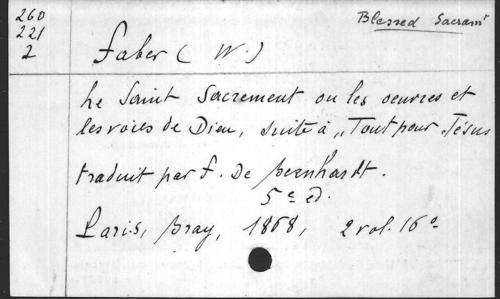 260
221
2
Blessed Sacramt
Faber (W.)
Le Saint Sacrement ou les oeuvres et
les voies de Dieu, suite à „Tout pour Jésus
traduit par F. De Bernhardt.
5e ed.
Paris, Bray, 1868, 2 vol. 16o